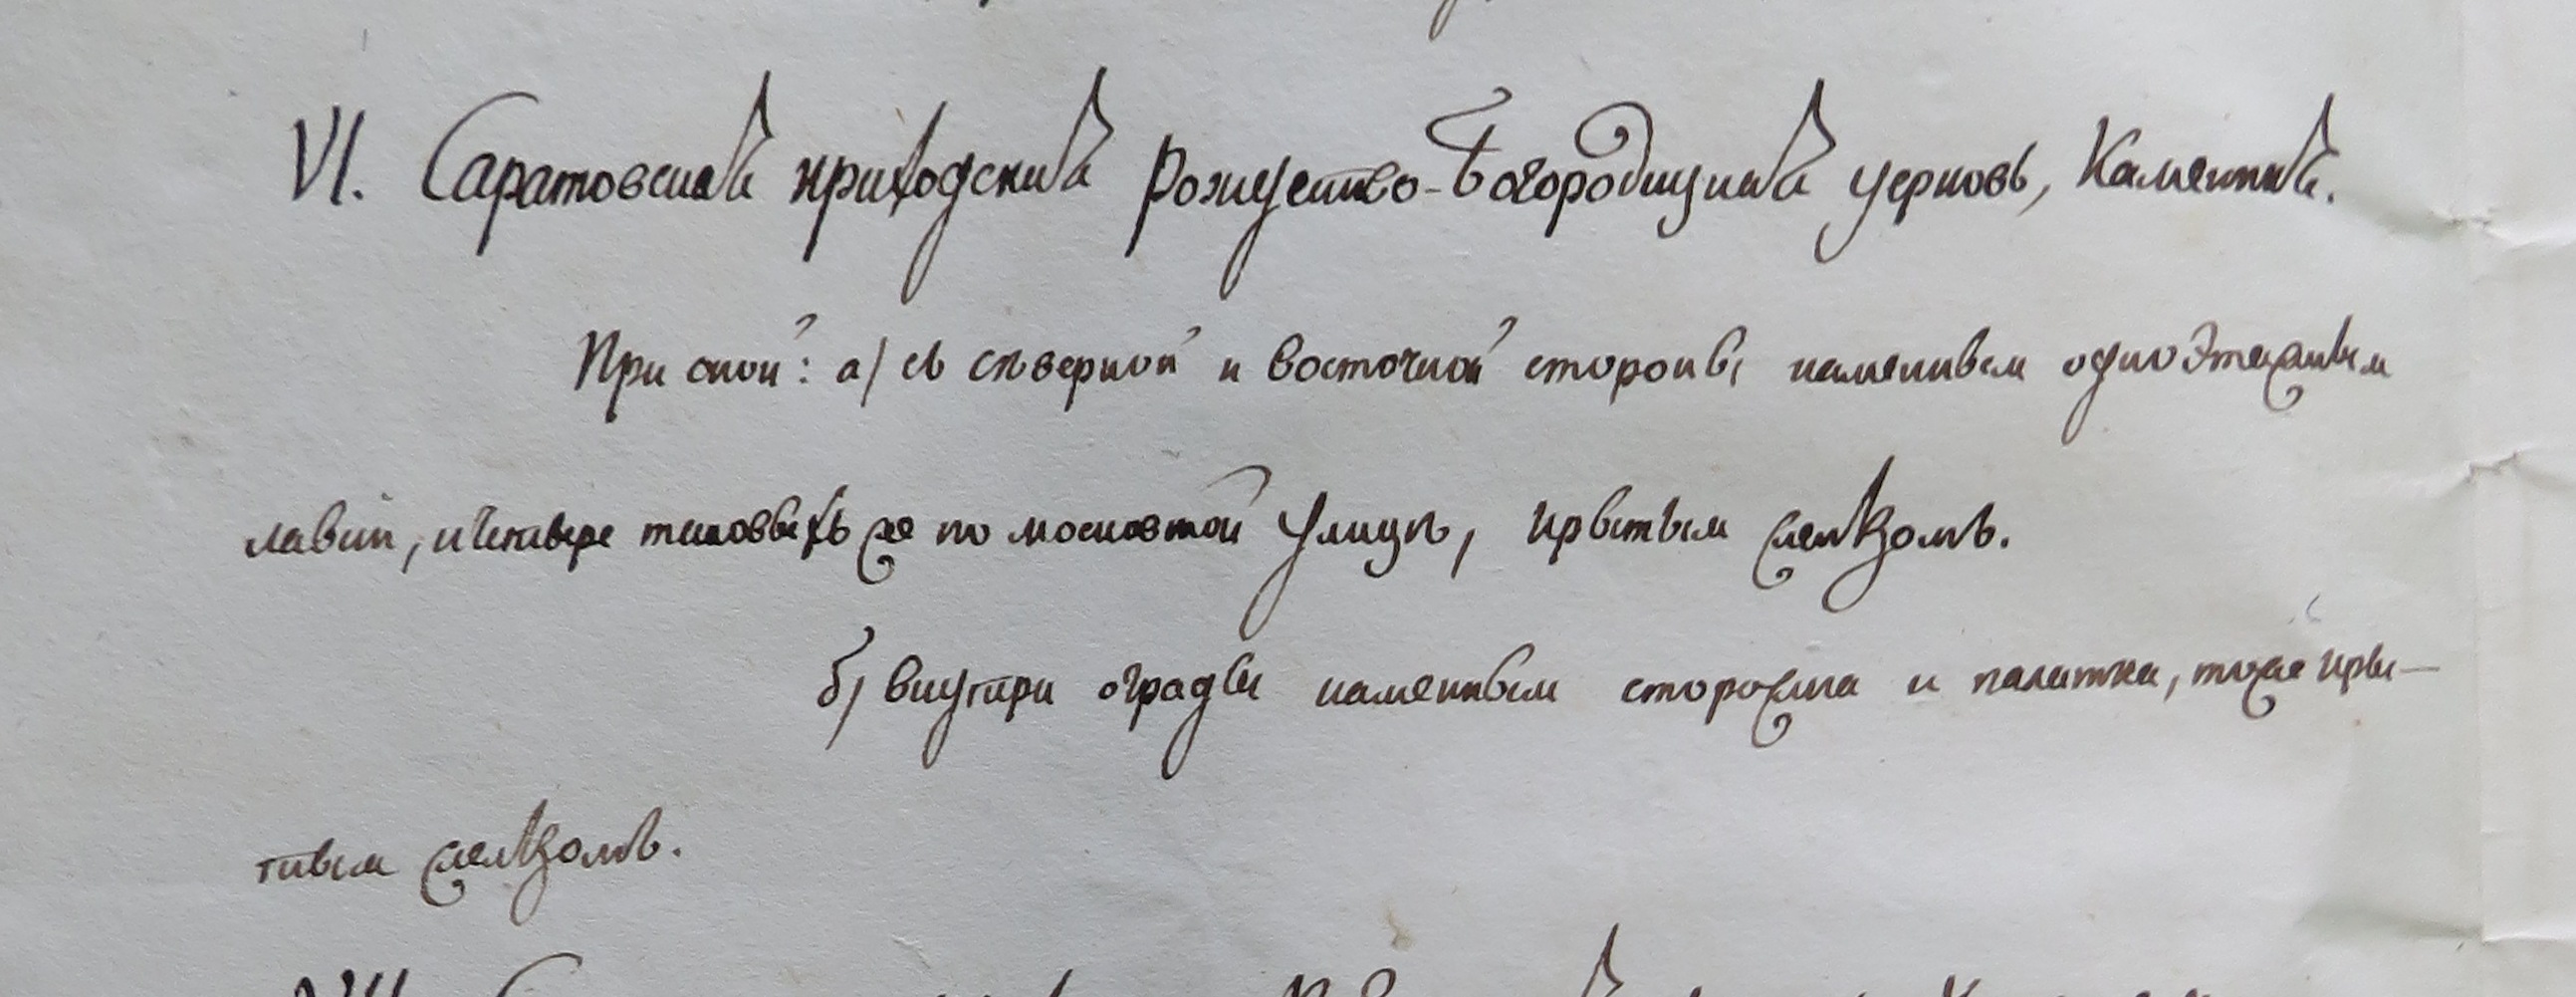 VI. Саратовская приходская Рождество-Богородицкая церковь, Каменная.
При оной: а) съ сѣверной и восточной стороны каменныя одноэтажныя
лавки, и четверо таковыхъ же по московской улицѣ, крытыя желѣзомъ.
б) внутри ограды каменныя сторожка и палатка, тоже кры-
тыя желѣзомъ.